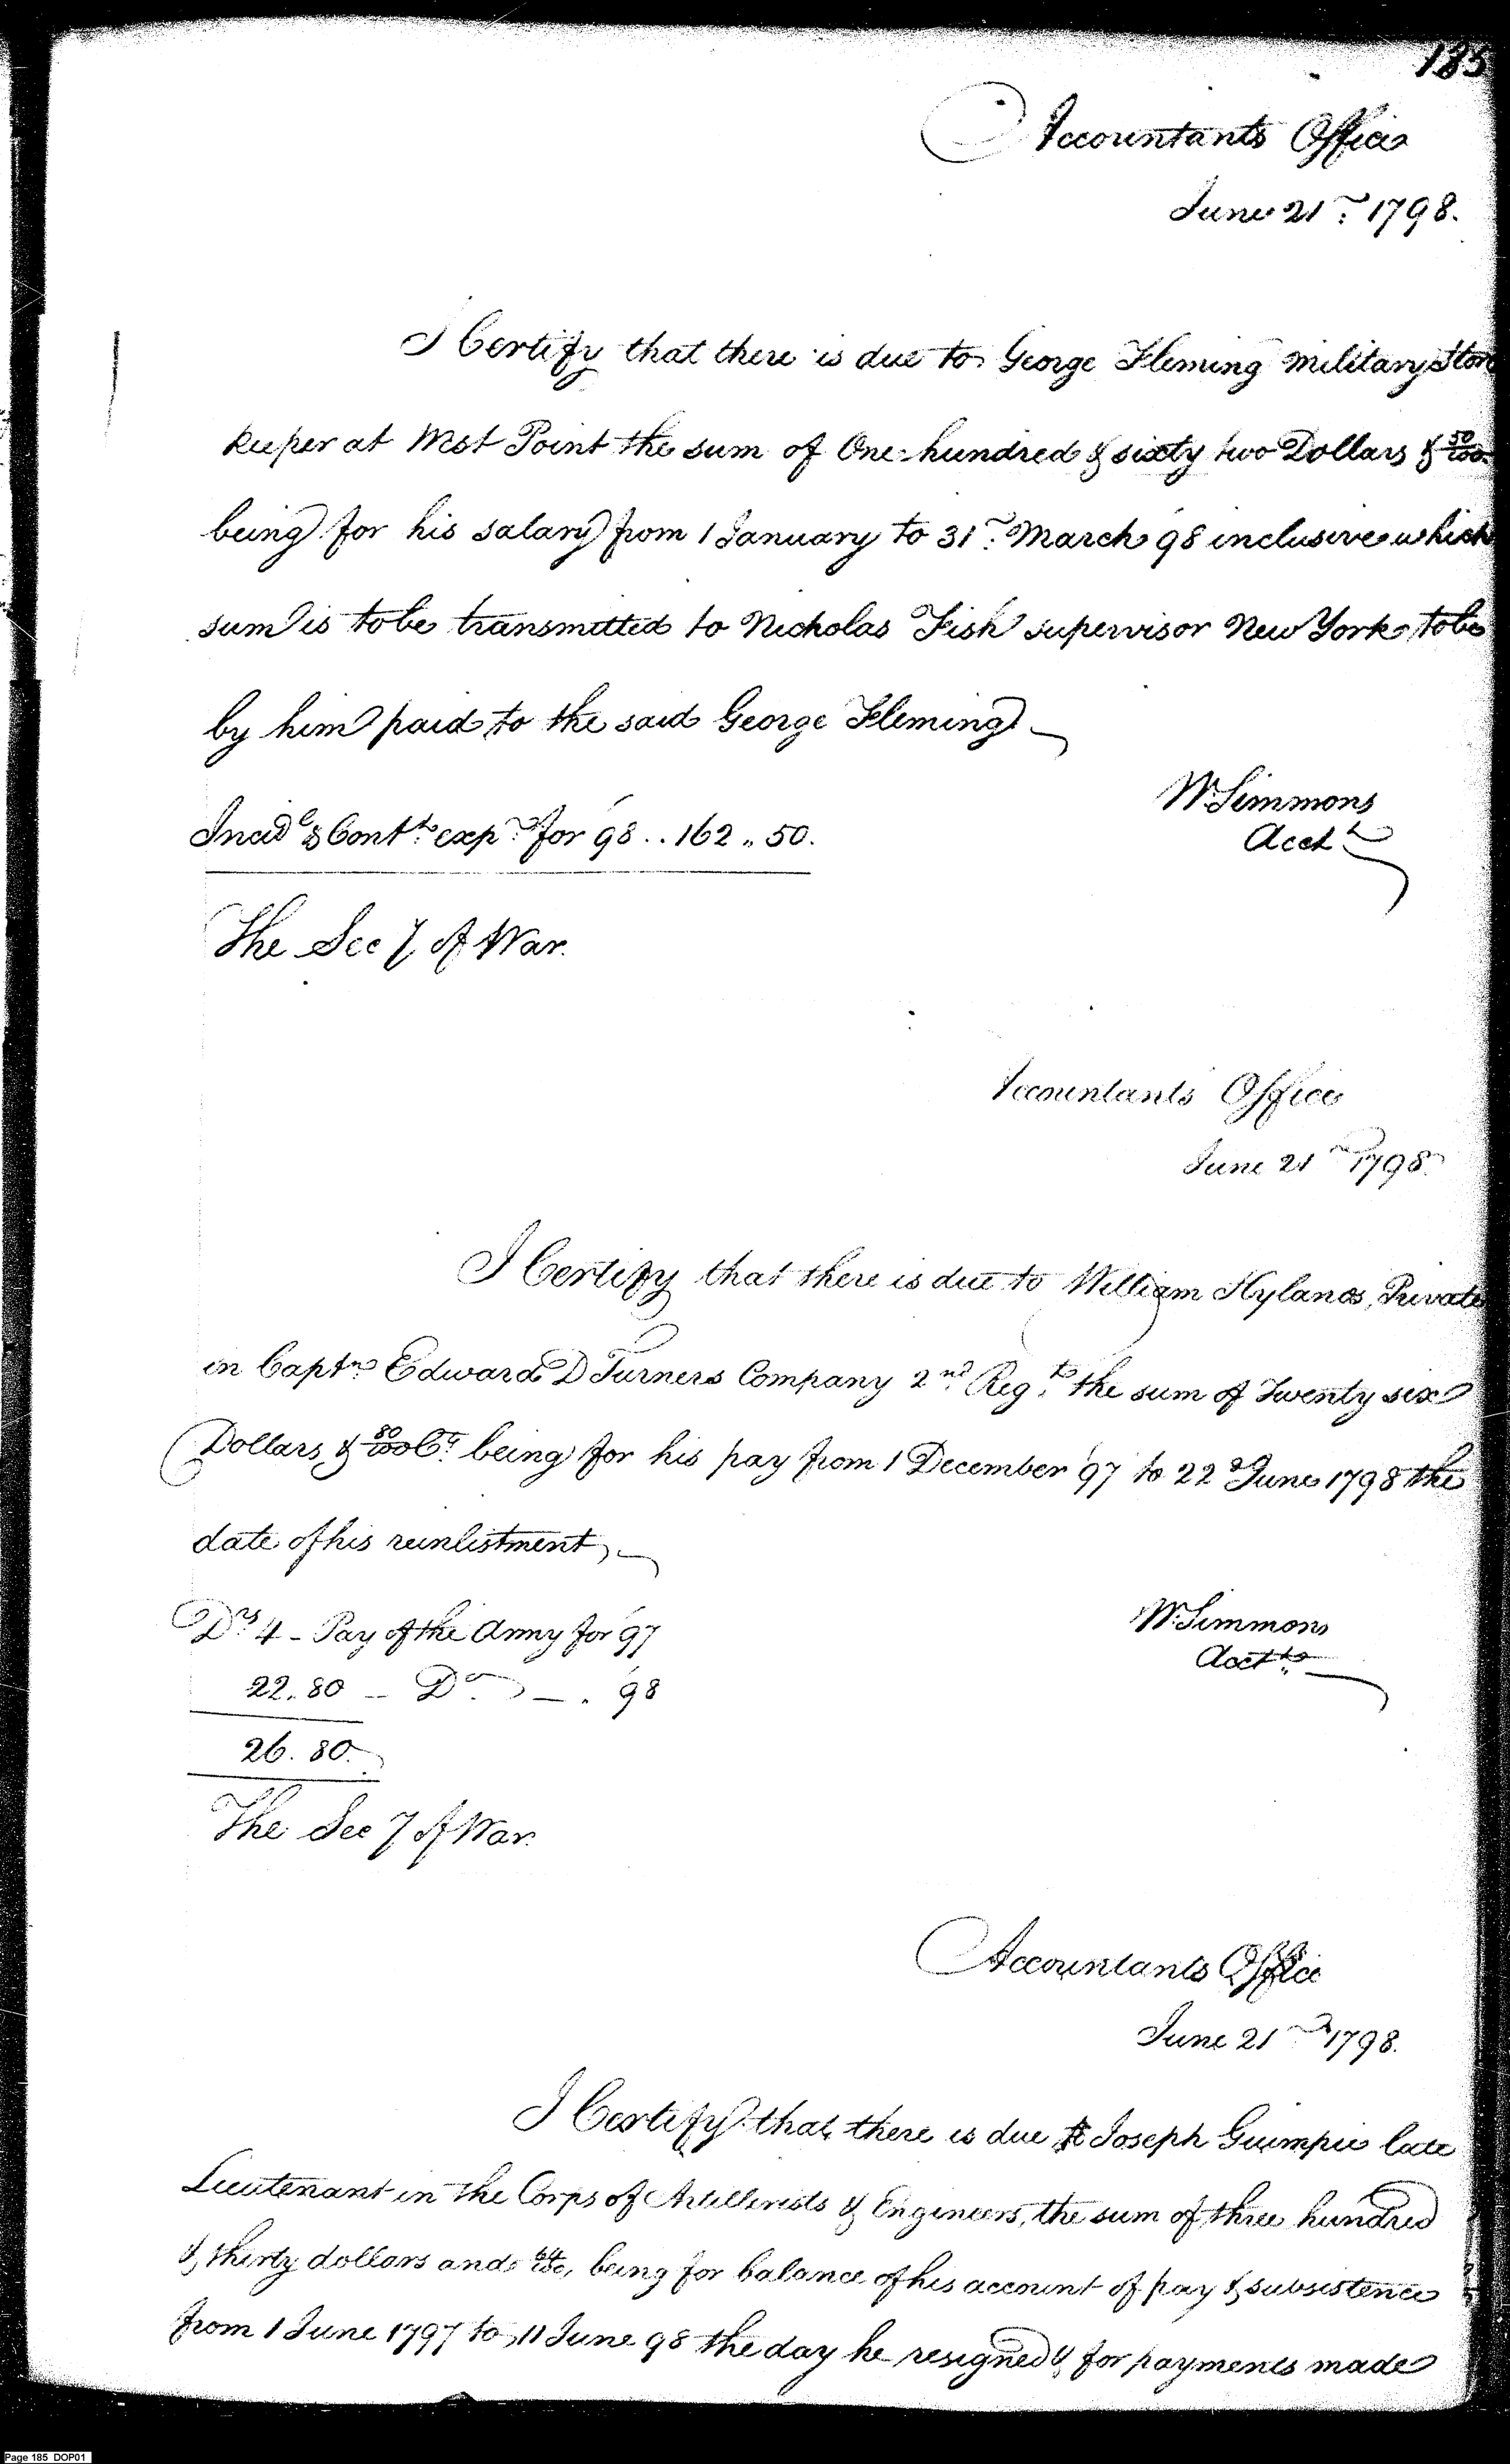 185
Accountants Office
June 21st 1798.
I Certify that there is due to George Fleming Military Store
keeper at West Point the sum of One hundred & sixty two Dollars & 50/100
being for his salary from 1 January to 31st March 98 inclusive which
sum is to be transmitted to Nicholas Fish supervisor New York to be
by him paid to the said George Fleming
Incidl & Contt exps for 98 .. 162 .. 50.
Wm Simmons
Acct
The Secy of War.
Accountants Office
June 21st 1798
I Certify that there is due to William Hyland, Private
in Captn Edward D Turners Company 2nd Regt the sum of Twenty six
Dollars & 80/100 Cts being for his pay from 1 December '97 to 22d June 1798 the
date of his reinlistment
Drs 4 - Pay of the Army for '97
22.80 - Do - . 98
26.80.
Wm Simmons
Acctt
The Secy of War.
Accountants Office
June 21st 1798.
I Certify that there is due to Joseph Guimpie late
Lieutenant in the Corps of Artillerists & Engineers, the sum of three hundred
& thirty dollars and 64/100, being for balance of his account of pay & subsistence
from 1 June 1797 to 11 June 98 the day he resigned & for payments made
Page 185 DOP01